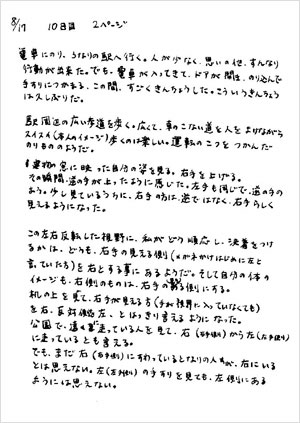 8/17 10日目 2ページ
電車にのり、となりの駅へ行く。人が少なく、思いの他、すんなり
行動が出来た。でも、電車が入ってきて、ドアが開き、のり込んで
手すりにつかまる、この間、すごくきんちょうした。こういうきんちょう
は久しぶりだ。
駅周辺の広い歩道を歩く。広くて、車のこない道を人をよけながら
スイスイ(本人のイメージ)歩くのは楽しい。運転のこつをつかんだ
のりもののようだ。
建物の窓に映った自分の姿を見る。右手を上げる。
その瞬間、逆の手が上ったように感じた。左手も同じで、逆の手の
よう。少し見ているうちに、右手の方は、逆ではなく、右手らしく
見えるようになった。
この左右反転した視野に、私がどう順応し、決着をつけ
るかは、どうも、右手の見える側(メガネかけはじめに左と
言っていた方)を右とする事にあるようだ。そして自分の体の
イメージも、右側のものは、右手の側にする。
机の上を見て、右手が見える方(手が視界に入っていなくても)
を右、反対側を左、とはっきり言えるようになった。
公園で、遠くを走っている人を見て、右(右手側)から左(左手側)
に走っているとも言える。
でも、まだ右(右手側)にすわっているとなりの人が、右にいる
とは思えない。左(左手側)の手すりを見ても、左側にある
ようには思えない。